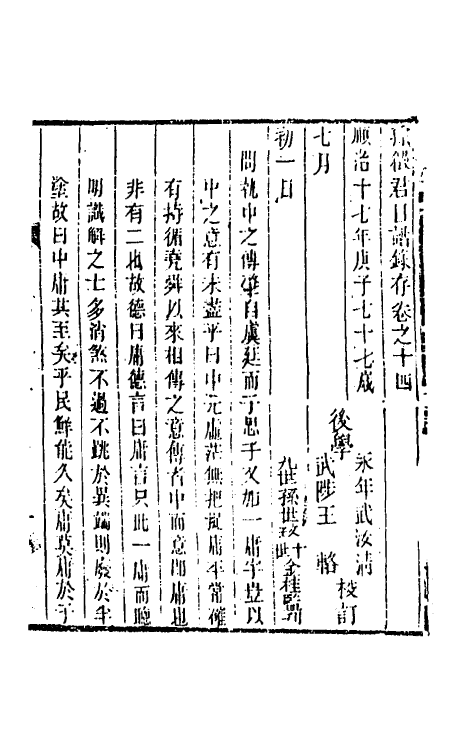 孫徵君日譜錄存卷之十四
後學
永年武汝清
武陟王輅
校訂
九世孫世玟
十世
金桂監刊
順治十七年庚子七十七歲
七月
初一日
問執中之傳肇自虞廷而子思子又加一庸字豈以
中之意有未盡乎曰中元虛茫無把捉庸平常確
有持循堯舜以來相傳之意傳者中而意即庸也
非有二也故德曰庸德言曰庸言只此一庸而聰
明識解之士多消煞不過不跳於異端則廢於半
塗故曰中庸其至矣乎民鮮能久矣庸莫庸於子